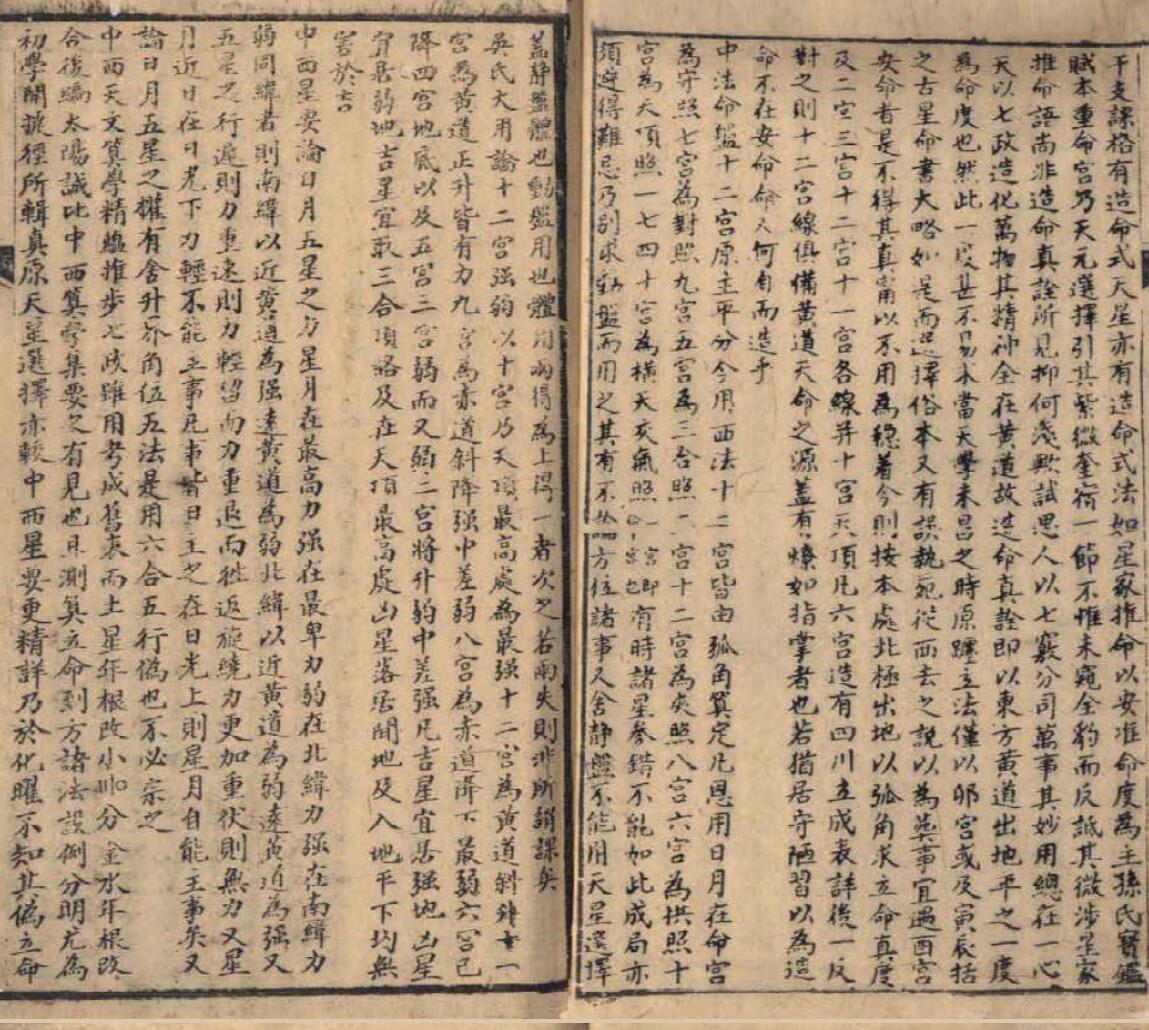 干支課格有造命式天星亦有造命式法如星家推命以安准命度為主孫氏寶鑑
賦本重命宮乃天元選擇引其紫微奎宿一節不惟未窺全豹而反詆其微涉星家
推命語尚非造命真詮所見抑何淺歟試思人以七竅分司萬事其妙用總在一心
天以七政造化萬物其精神全在黃道故造命真詮即以東方黃道出地平之一度
為命度也然此一度甚不易求當天學未昌之時原躔立法僅以卯宮或及寅辰括
之古星命書大略如是而選擇俗本又有誤執宛從而去之說以為葬事宜過酉宮
安命者是不得其真甯以不用為穩着今則按本處北極出地以弧角求立命真度
及二宮三宮十二宮十一宮各線并十宮天頂凡六宮造有四川立成表詳後一反
對之則十二宮線俱備黃道天命之源蓋有燎如指掌者也若猶居守陋習以為造
命不在安命命又何自而造乎
中法命盤十二宮原主平分今用西法十二宮皆由弧角算定凡恩用日月在命宮
為守照七宮為對照九宮五宮為三合照二宮十二宮為夾照八宮六宮為拱照十
宮為天頂照一七四十宮為橫天交氣照一宮即命宮也有時諸星參錯不能如此成局亦
須避得難忌乃別求動盤而用之其有不論方位諸事又舍靜盤不能用天星選擇
蓋靜盤體也動盤用也體用兩得為上得一者次之若兩失則非所謂課矣
吳氏大用論十二宮强弱以十宮乃天頂最高處為最强十二宮為黃道斜升十一
宮為黃道正升皆有力九宮為赤道斜降强中差弱八宮為赤道降下最弱六宮已
降四宮地底以及五宮三宮弱而又弱二宮將升弱中差强凡吉星宜居强地凶星
宜居弱地吉星宜取三合項格及在天頂最高處凶星落居閒地及入地平下均無
害於吉
中西星要論日月五星之力星月在最高力强在最卑力弱在北緯力强在南緯力
弱同緯者則南緯以近黃道為强遠黃道為弱北緯以近黃道為弱遠黃道為强又
五星之行遲則力重速則力輕留而力重退而徃返旋繞力更加重伏則無力又星
月近日在日光下力輕不能主事凡事皆日主之在日光上則星月自能主事矣又
論日月五星之權有舍升界角位五法是用六合五行偽也不必宗之
中西天文算學精蘊推步七政雖用考成舊表而土星年根改小分金水年根改
合後編太陽誠比中西算學集要之有見也且測算立命到方諸法設例分明尤為
初學開捷徑所輯真原天星選擇亦較中西星要更精詳乃於化曜不知其偽立命